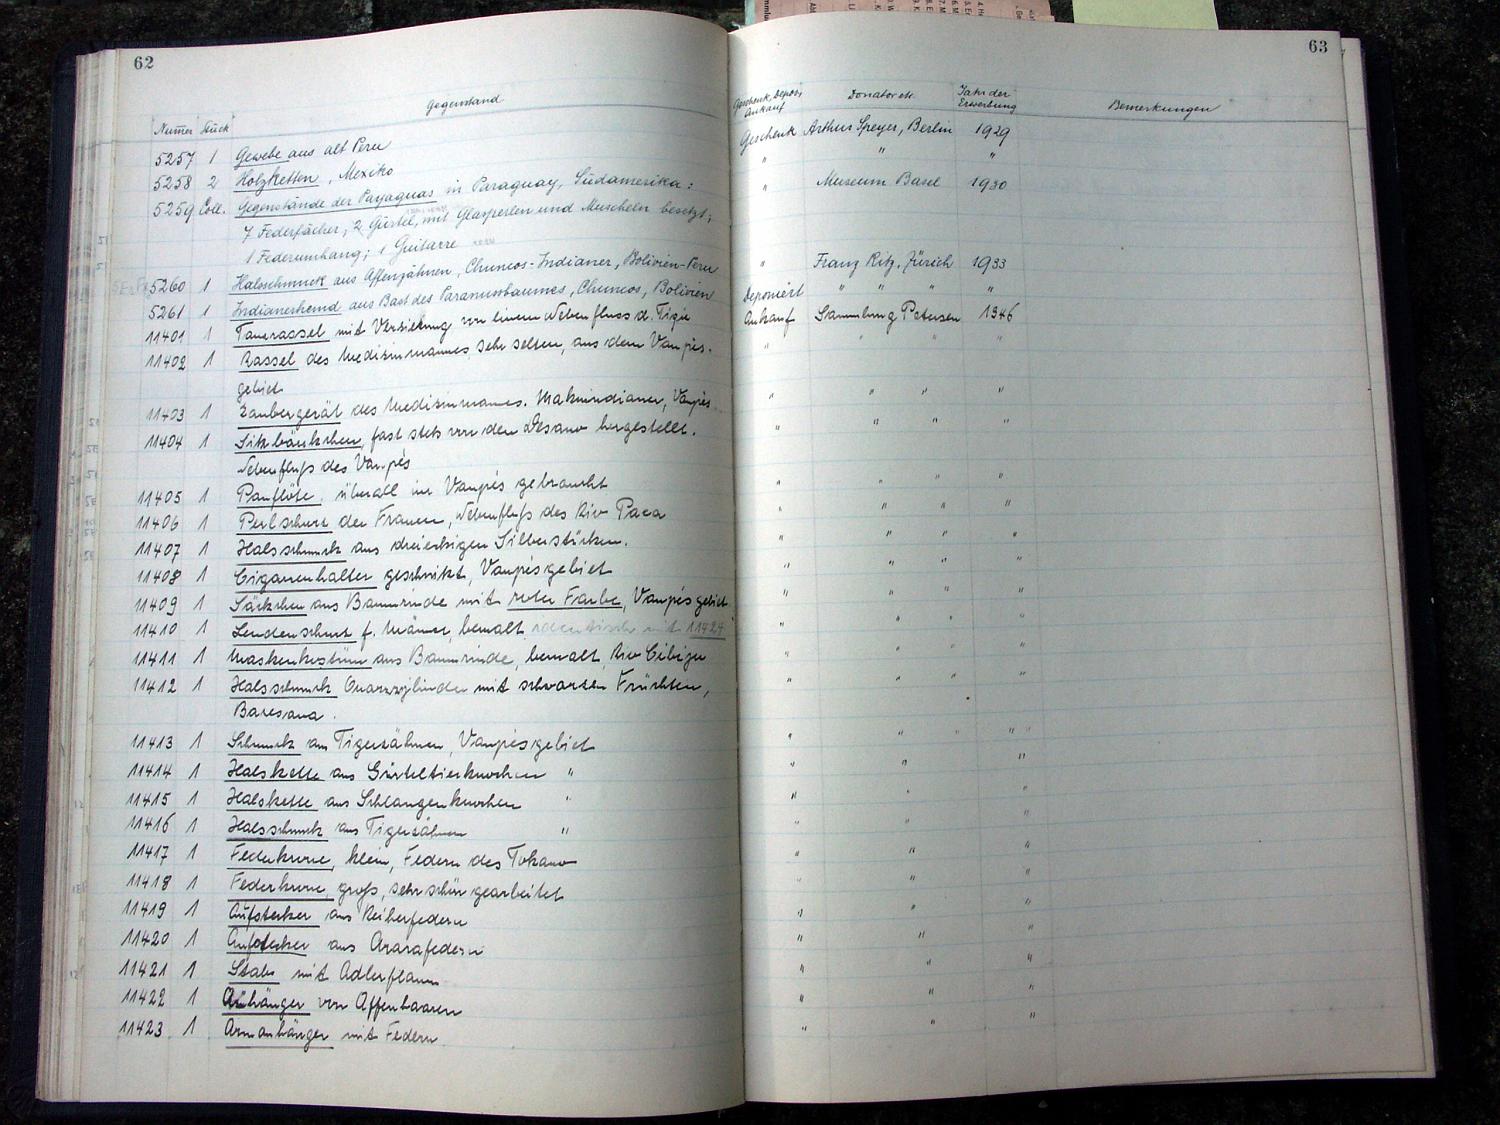 62
Gegenstand
Numer Stück
5257 1 Gewebe aus alt Peru
5258 2 Holzketten, Mexiko
5259 Coll. Gegenstände der Payaguas in Paraguay, Südamerika:
7 Federfächer, 2 Gürtel, mit Glasperlen und Muscheln besetzt,
1 Federumhang; 1 Guitarre
5260 1 Halsschmuck aus Affenzähnen, Chuncos-Indianer, Bolivien-Peru
5261 1 Indianerhemd aus Bast des Paranussbaumes, Chuncos, Bolivien
11401 1 Tanzrassel mit Verzierung von einem Nebenfluss d. Tigie
11402 1 Rassel des Medizinmannes sehr selten, aus dem Vaupés-
gebiet
11403 1 Zaubergerät des Medizinmannes. Makuindianer, Vaupés
11404 1 Sitzbänkchen, fast stets von den Desano hergestellt.
Nebenfluss des Vaupés
11405 1 Panflöte, überall im Vaupés gebraucht
11406 1 Perlschurz der Frauen, Nebenfluss des Rio Paca
11407 1 Halsschmuck aus dreieckigen Silberstücken.
11408 1 Cigarrenhalter geschnitzt, Vaupésgebiet
11409 1 Säckchen aus Baumrinde mit roter Farbe, Vaupésgebiet
11410 1 Lendenschurz f. Männer, bemalt identisch mit 11424
11411 1 Maskenkostüm aus Baumrinde, bemalt, Rio Cibizu
11412 1 Halsschmuck Quarzzylinder mit schwarzen Früchten,
Baresana.
11413 1 Schmuck aus Tigerzähnen, Vaupésgebiet
11414 1 Halskette aus Gürteltierknochen "
11415 1 Halskette aus Schlangenknochen "
11416 1 Halsschmuck aus Tigerzähnen "
11417 1 Federkrone, klein, Federn des Tukano
11418 1 Federkrone, gross, sehr schön gearbeitet
11419 1 Aufstecker aus Reiherfedern
11420 1 Aufstecker aus Ararafedern
11421 1 Stab mit Adlerflaum
11422 1 Anhänger von Affenhaaren
11423 1 Armanhänger mit Federn
63
Geschenk, Depos, Ankauf Donator etc. Jahr der Erwerbung Bemerkungen
Geschenk Arthur Speyer, Berlin 1929
" " "
" Museum Basel 1930
" Franz Ritz, Zürich 1933
Deponiert " " " "
Ankauf Sammlung Petersen 1946